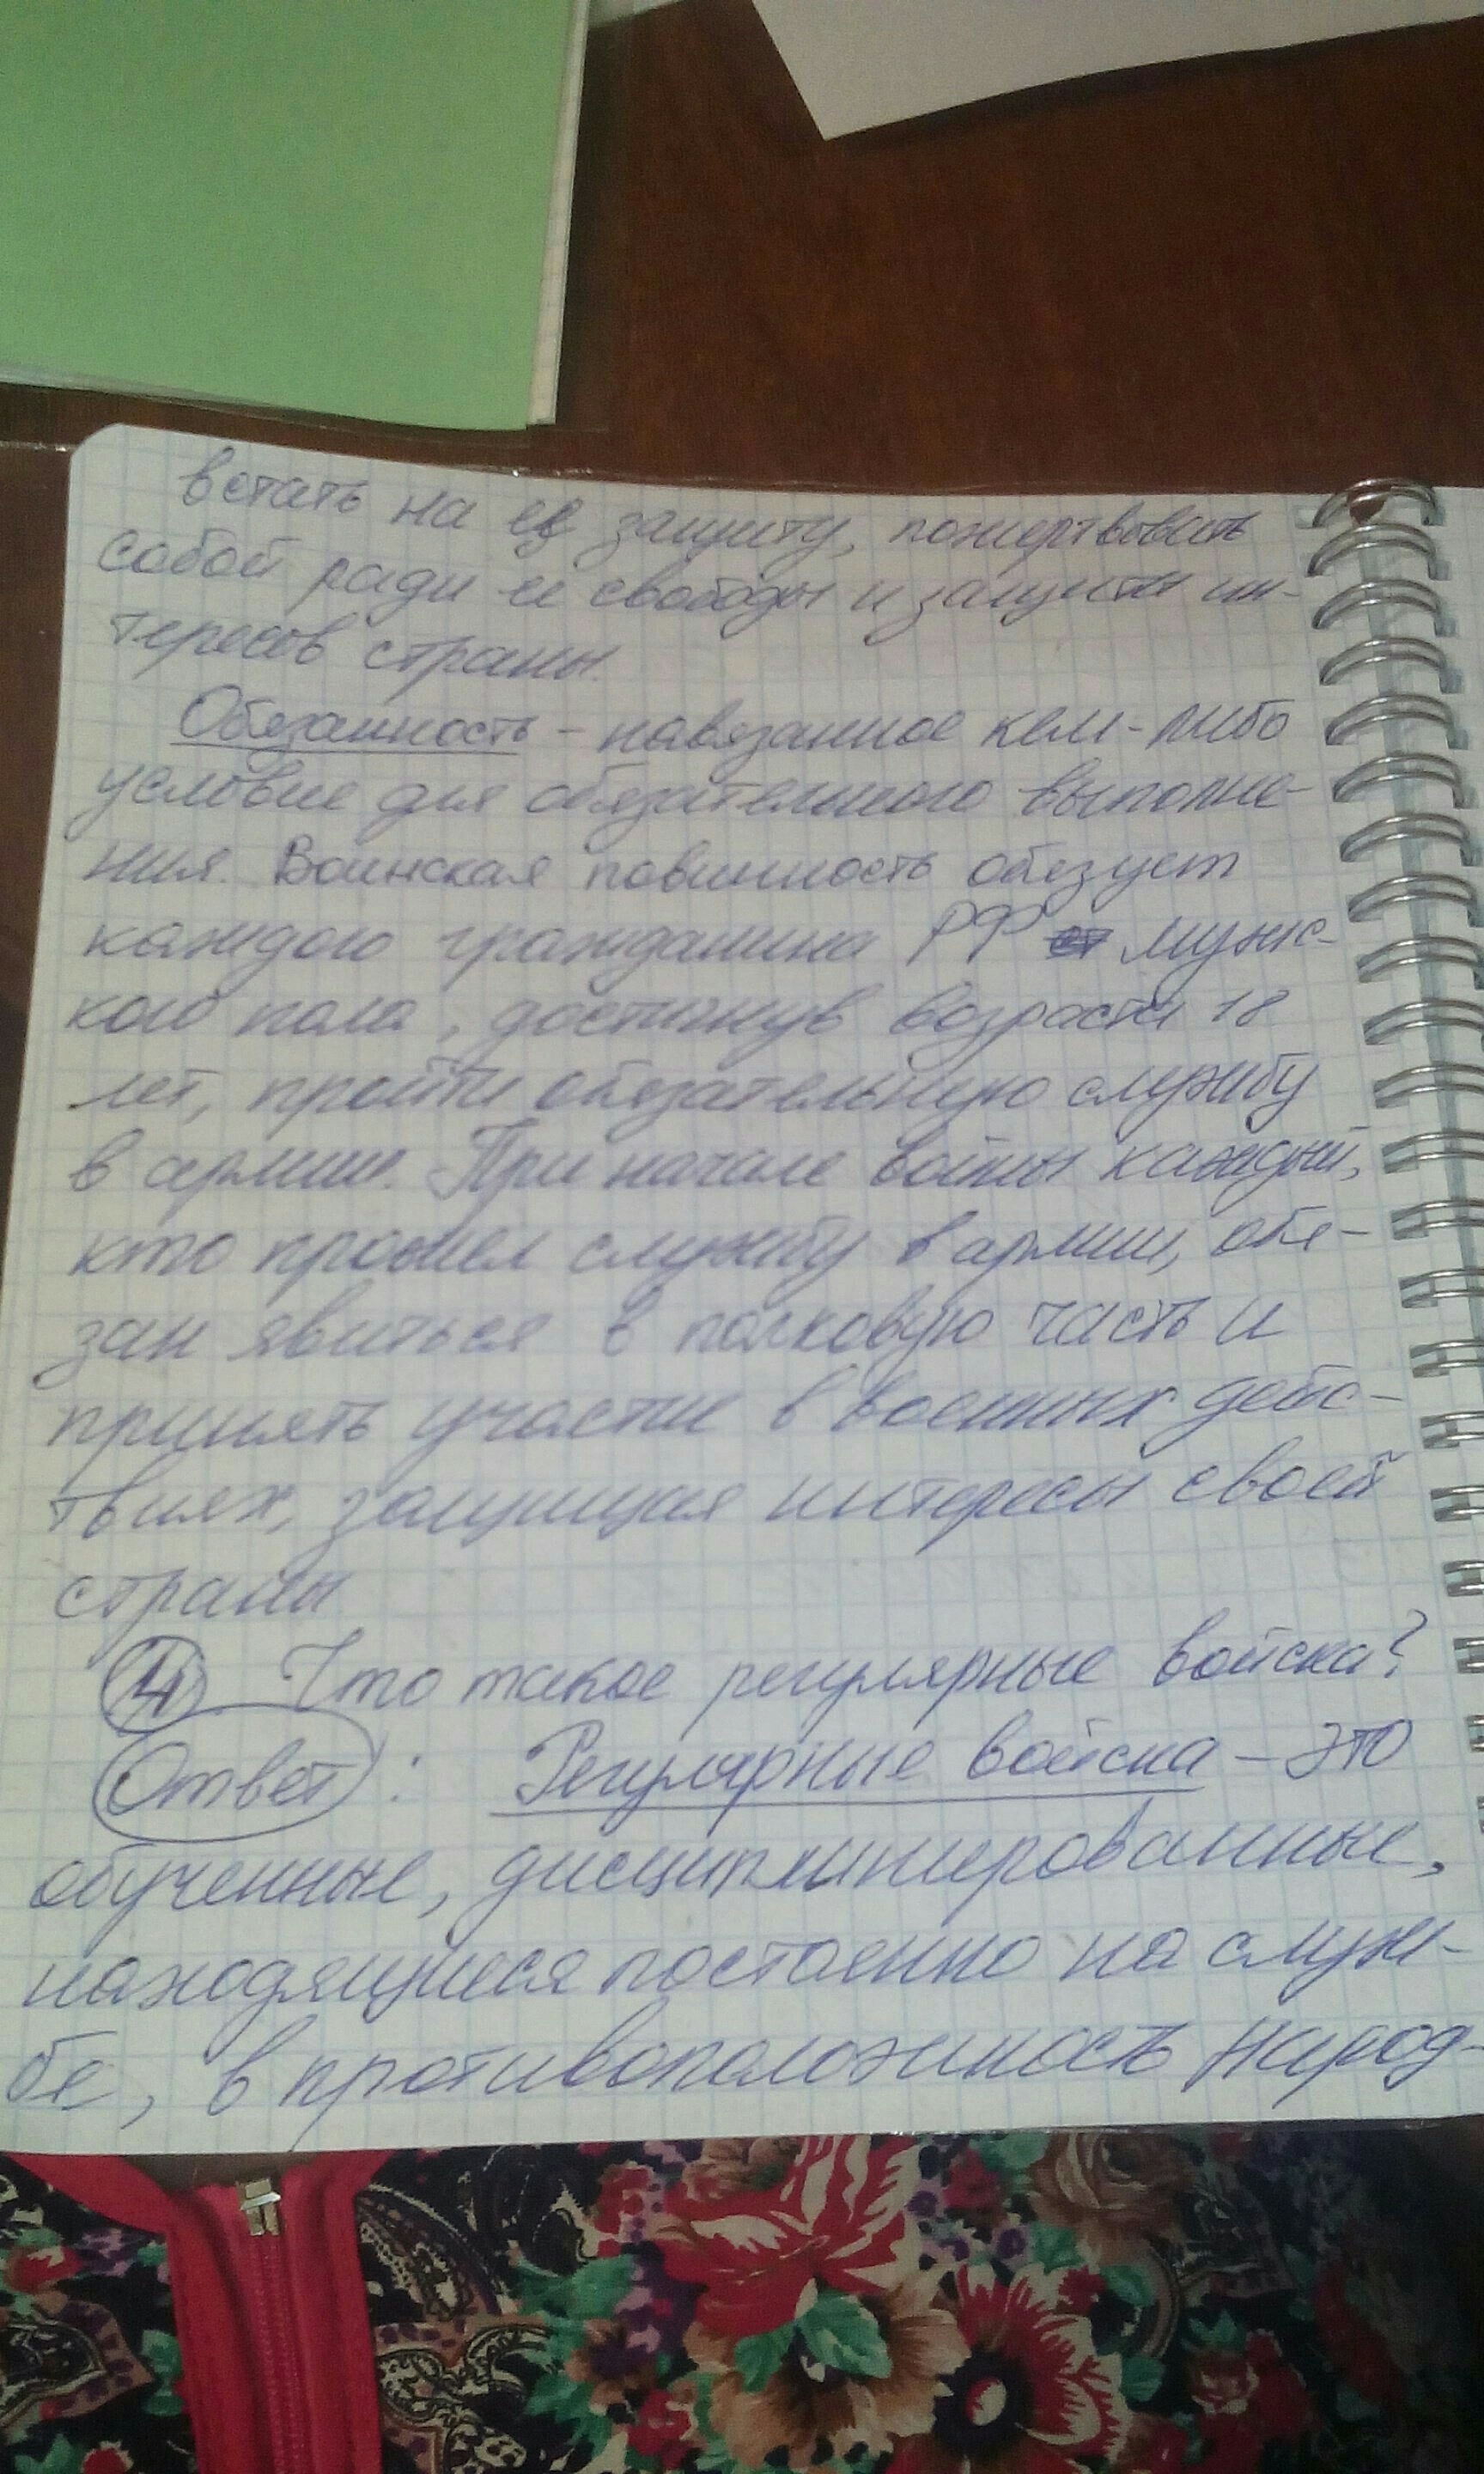 встать на её защиту, пожертвовать
собой ради ее свободы и защиты ин-
тересов страны.
Обязанность - навязанное кем-либо
условие для обязательного выполне-
ния. Воинская повинность обязует
каждого гражданина РФ мужс-
кого пола, достигнув возраста 18
лет, пройти обязательную службу
в армии. При начале войны каждый,
кто прошел службу в армии, обя-
зан явиться в полковую часть и
принять участие в военных дейс-
твиях, защищая интересы своей
страны
4 Что такое регулярные войска?
Ответ: Регулярные войска - это
обученные, дисциплинированные,
находящиеся постоянно на служ-
бе, в противоположность народ-